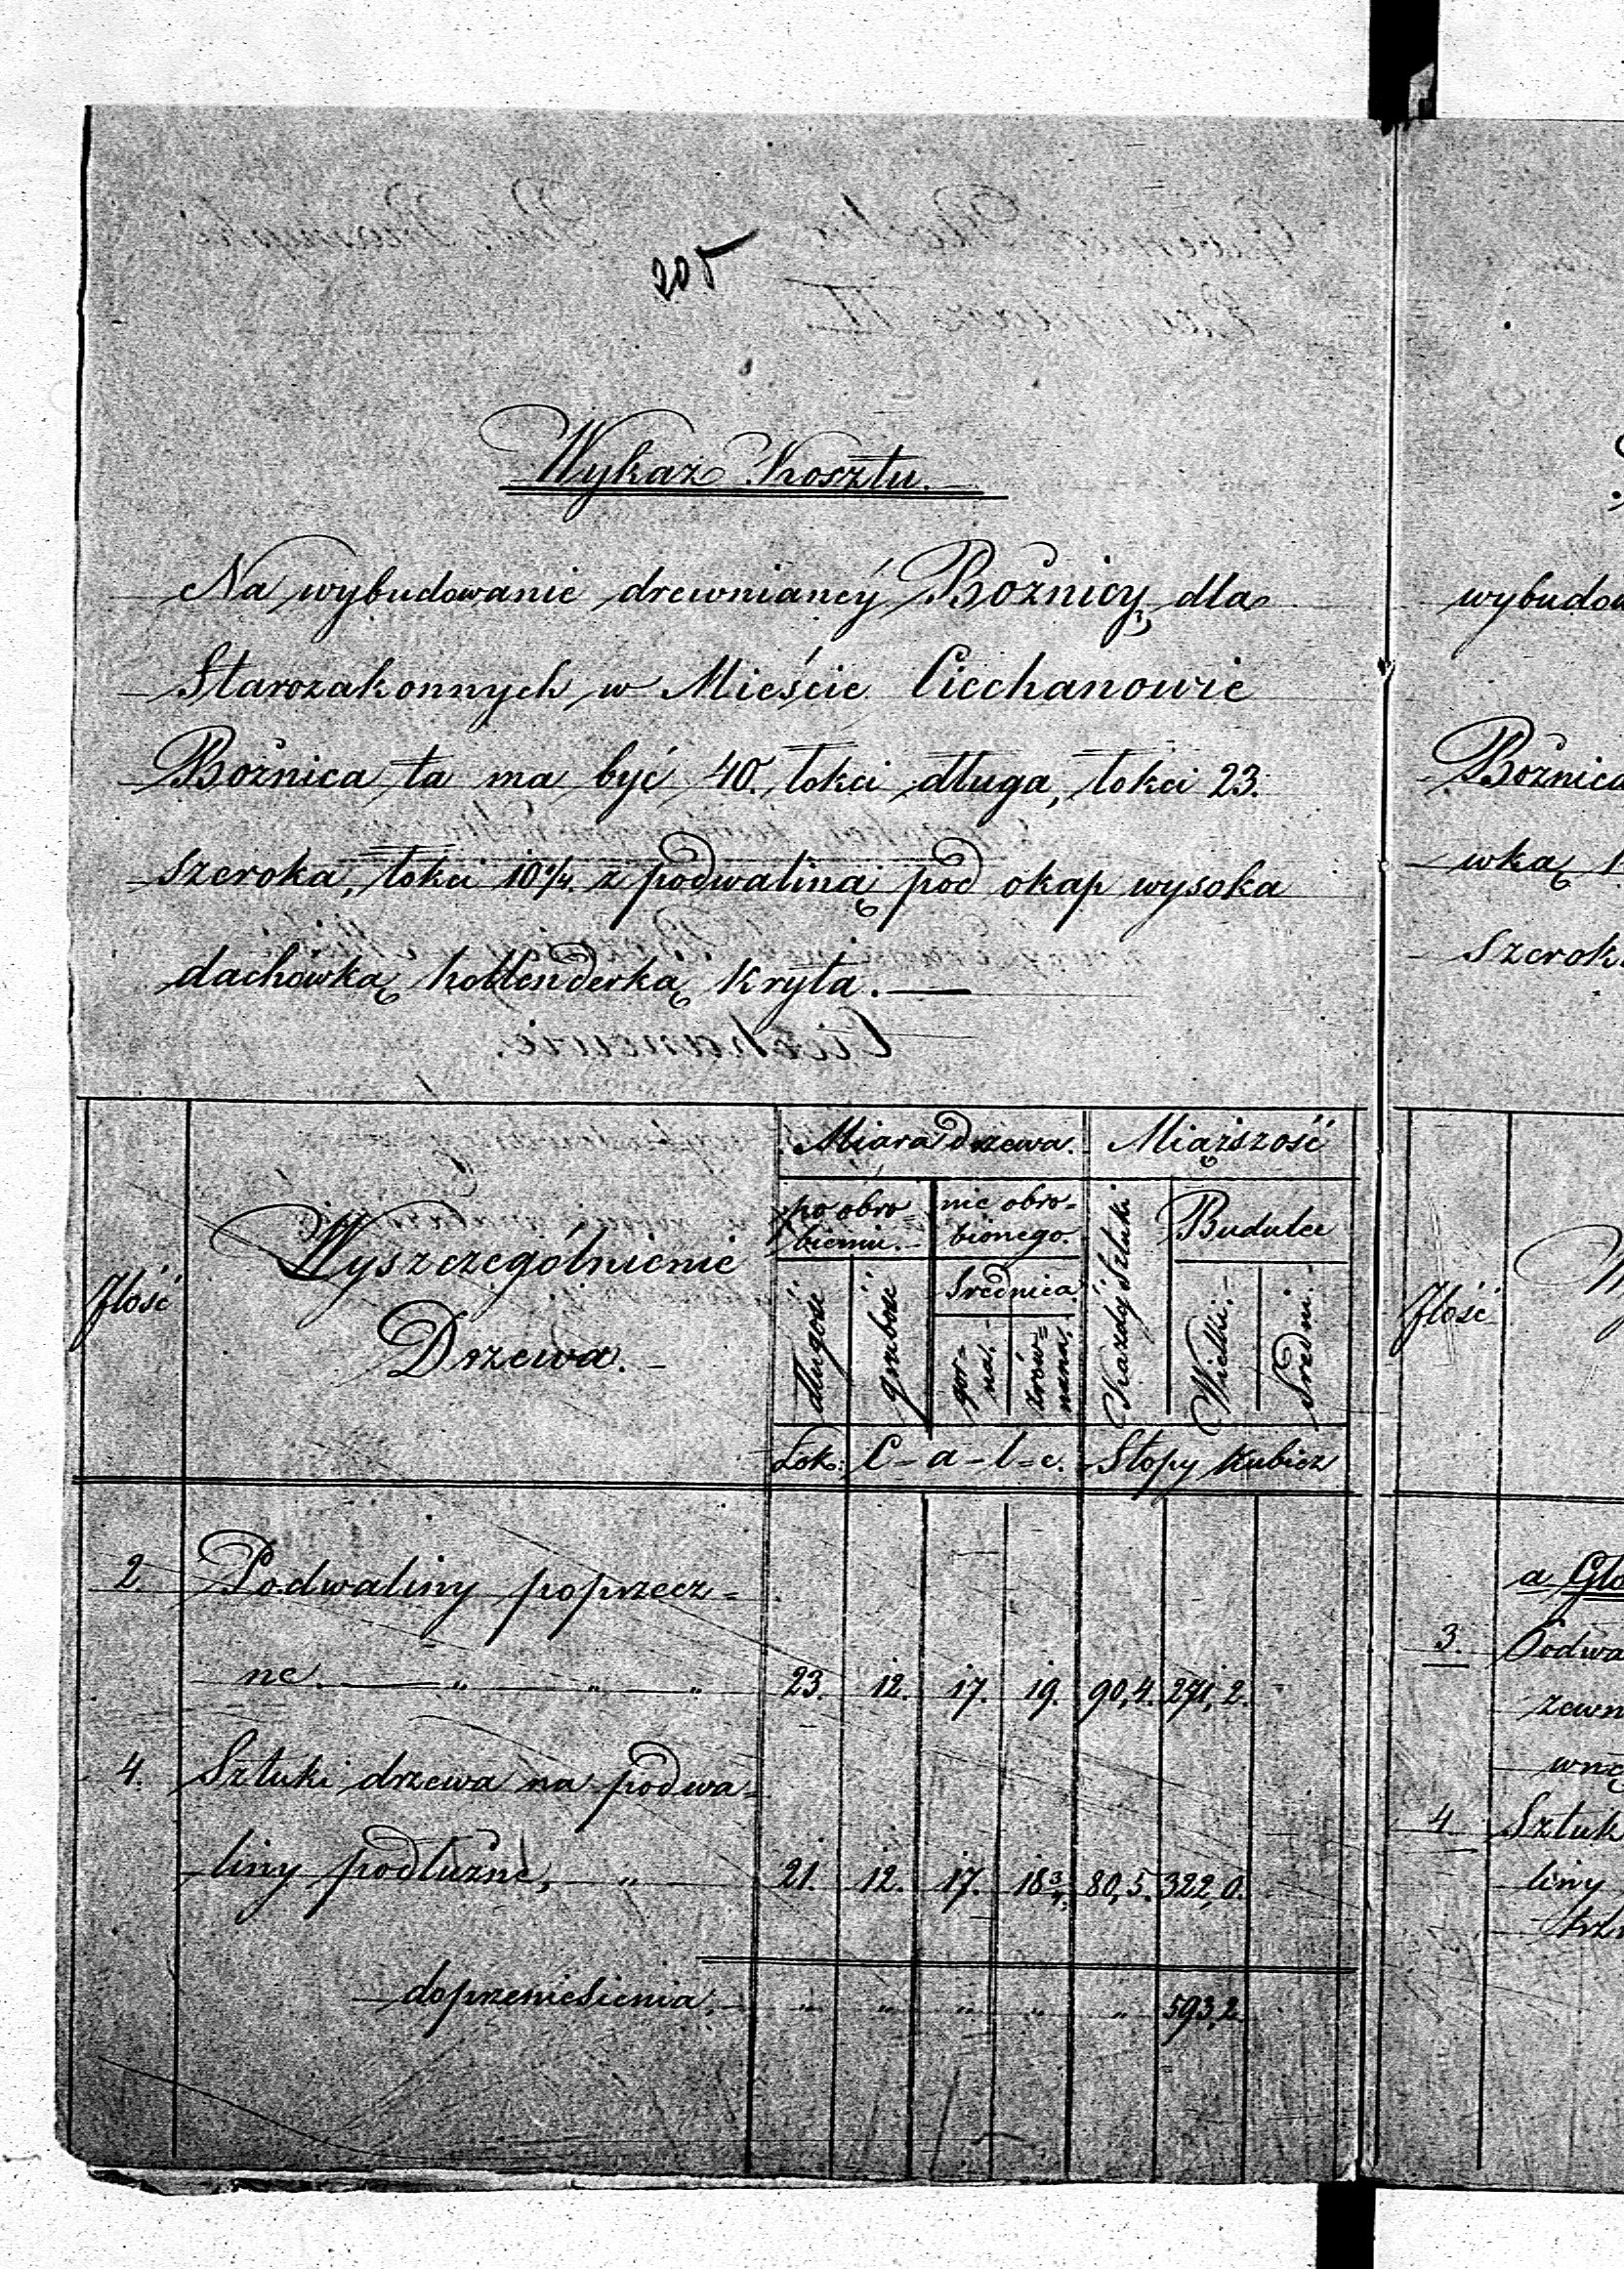 205
Wykaz Kosztu.
Na wybudowanie drewnianéy Bożnicy dla
Starozakonnych w Mieście Ciechanowie
Bożnica ta ma być 40. łokci długa, łokci 23.
szeroka, łokci 10 1/4 z podwaliną pod okap wysoka
dachowką hollenderką kryta.
Jlość
Wyszczególnienie
Drzewa.
Miara drzewa.
Miąższość
po obro=
bieniu.
nie obro-
bionego.
Każdéy Sztuki
Budulcu
długość
grubość
Srednica
gór=
na.
zrów=
nana.
Wielki.
Sredni.
Łok: C-a-l-e. Stopy Kubicz
2. Podwaliny poprzecz=
ne. " " " 23. 12. 17. 19. 90,4. 271,2.
4. Sztuki drzewa na podwa=
liny podłużne, " 21. 12. 17. 18 3/4 80,5. 322,0.
do przeniesienia. " " " " " 593,2
wybudow
Bożnica
wką
szerok
Jlość
a
3. Podwa
zewn
wnę
4 Sztuk
liny